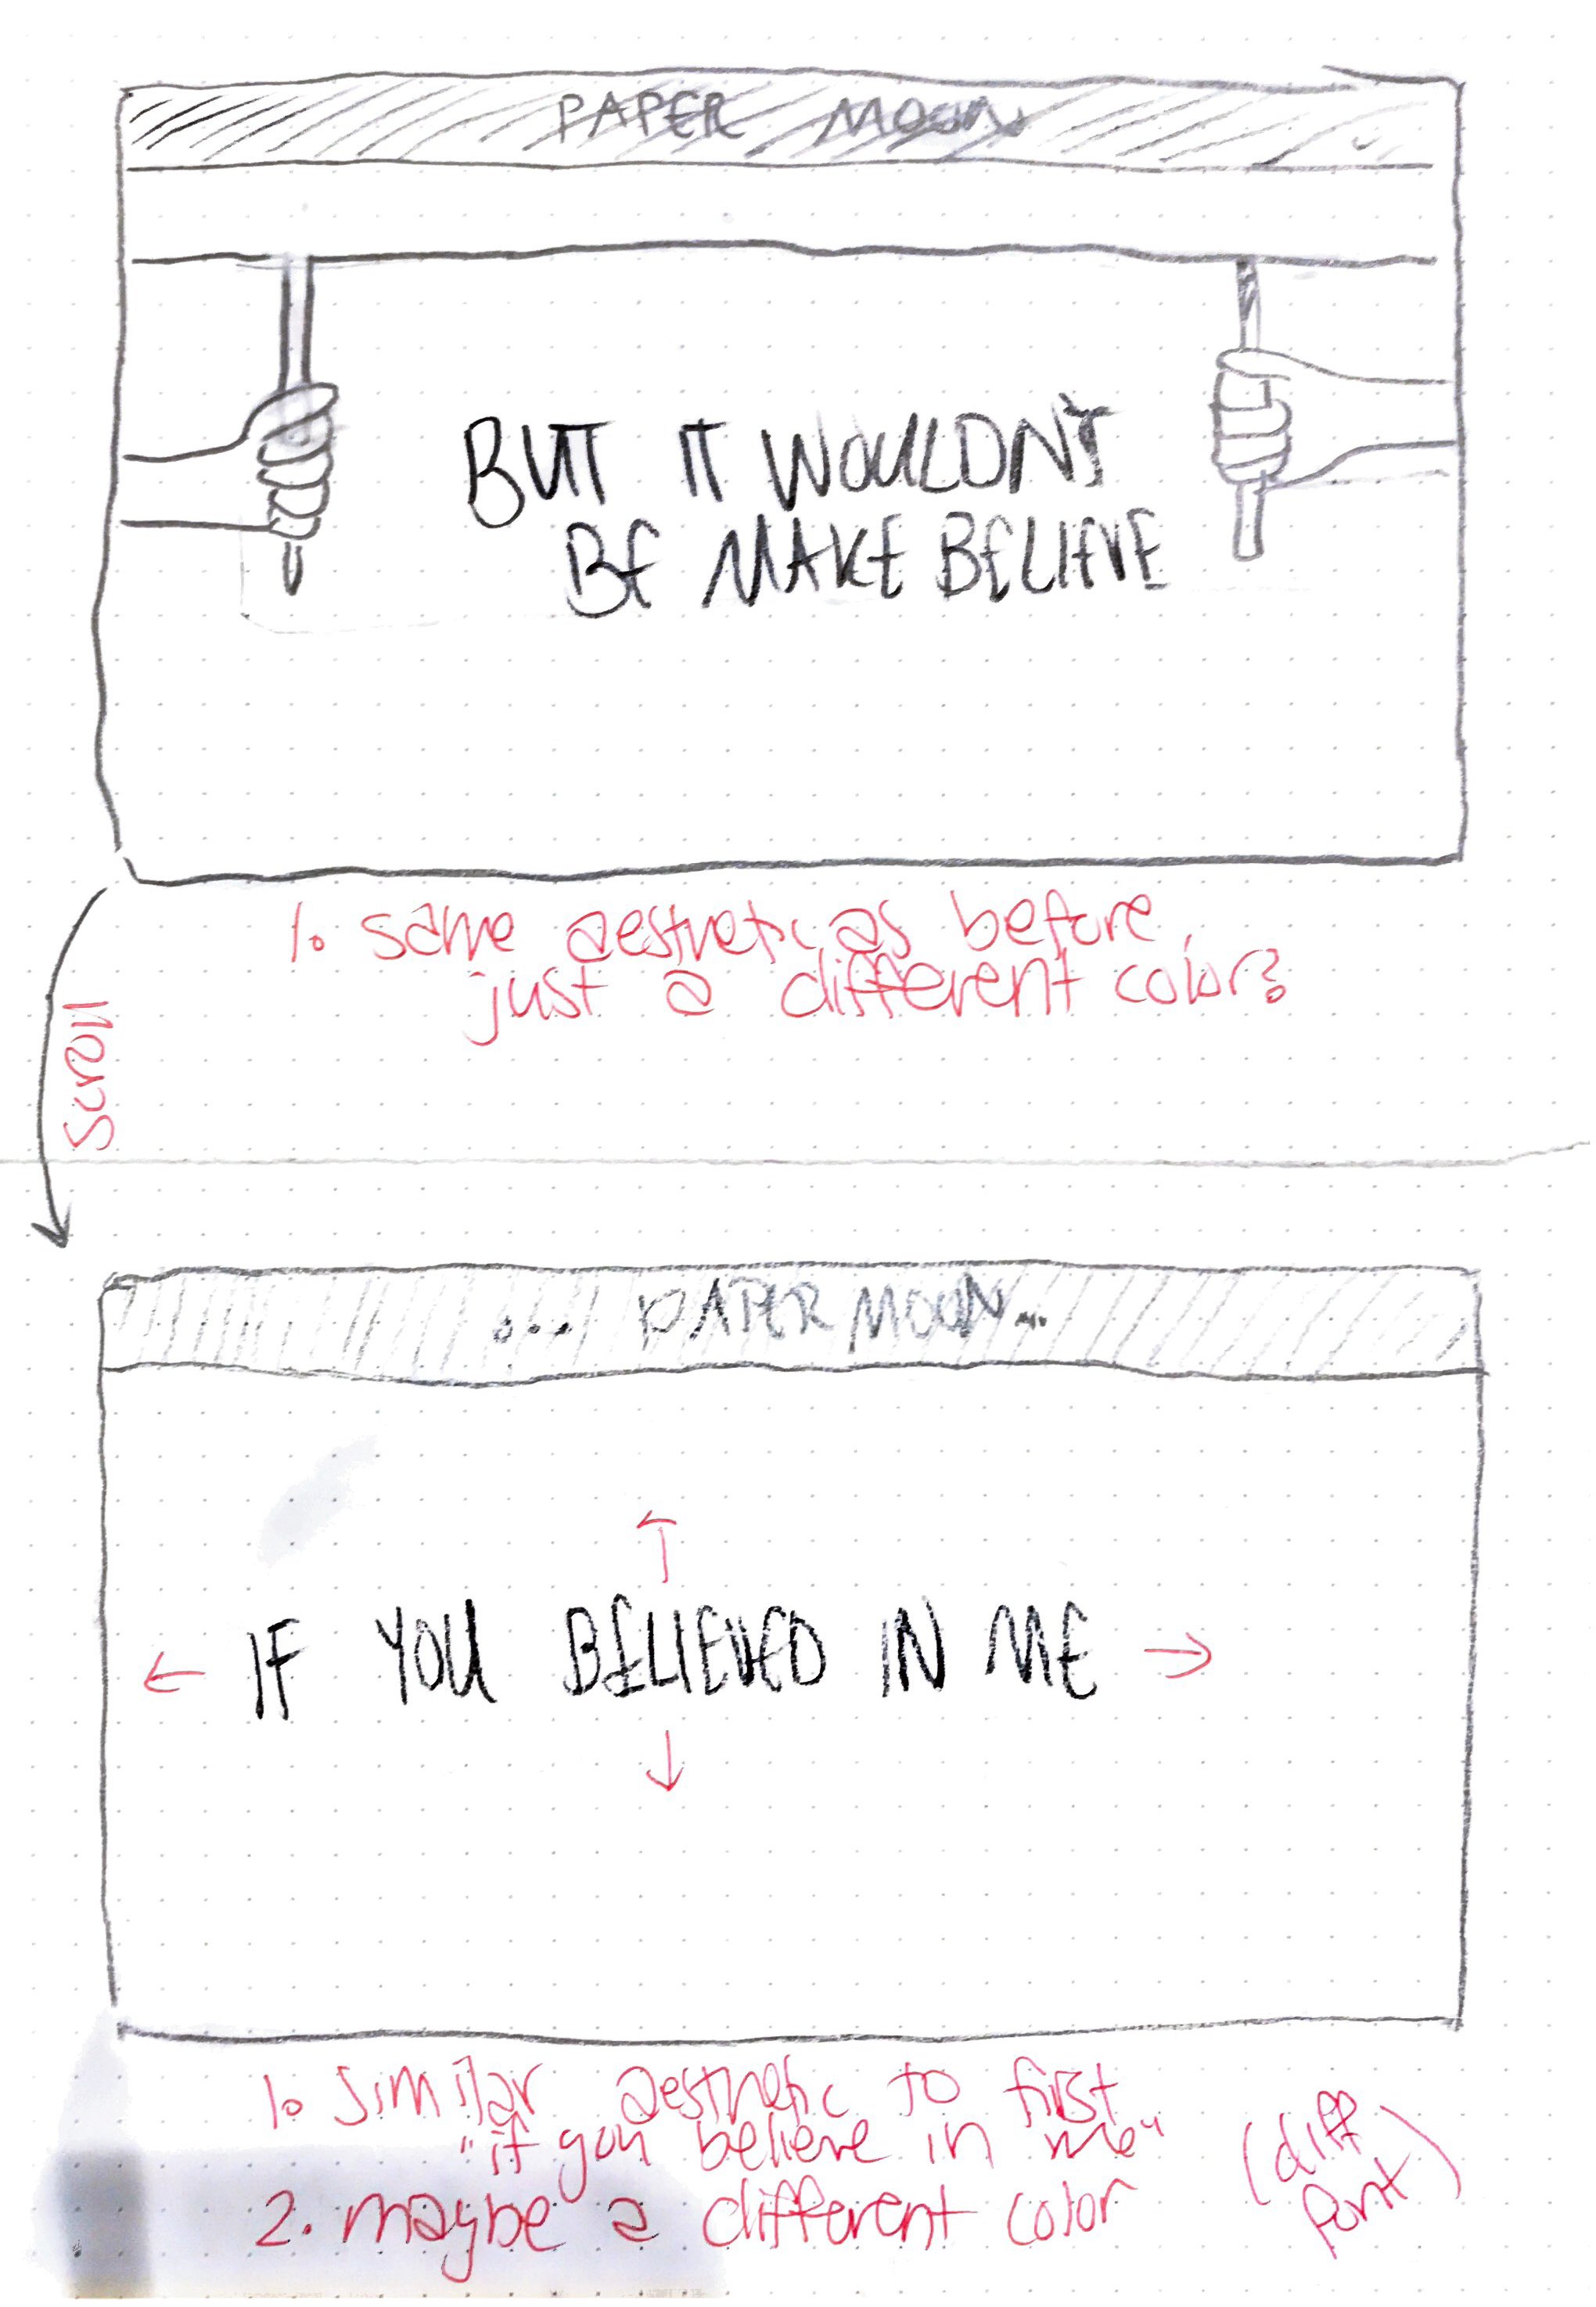 PAPER MOON
BUT IT WOULDN'T
BE MAKE BELIEVE
1. same aesthetic as before,
just a different color?
Scroll
... PAPER MOON...
IF YOU BELIEVED IN ME
1. similar aesthetic to first
"if you believe in me"
(diff
font)
2. maybe a different color